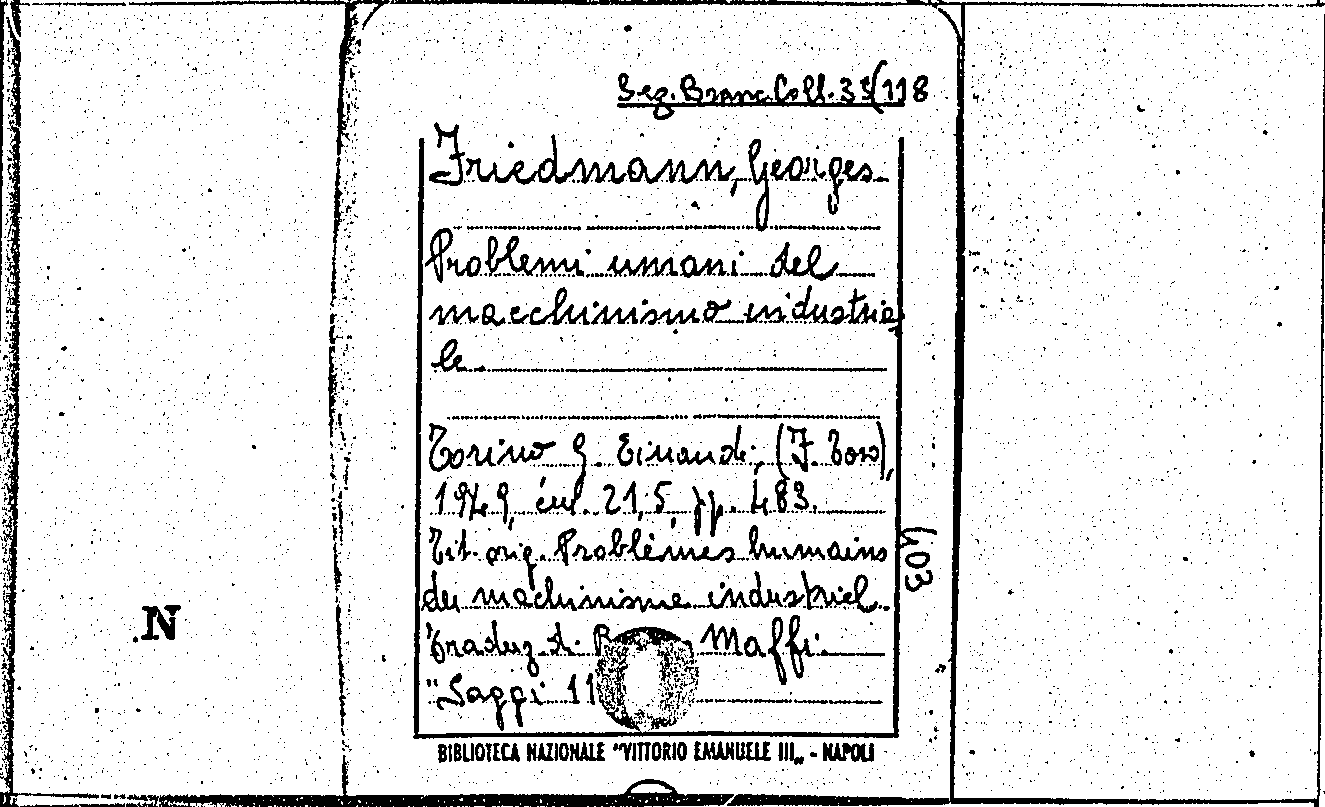 Sez. Branc. Coll. 33(118
Friedmann, Georges
Problemi umani del
macchinismo industria
le.
Torino G. Einaudi, (F. Toso),
1949, cm. 21,5, pp. 483.
Tit. orig. Problèmes humains
du machinisme industriel.
Traduz. di Maffi.
"Saggi 11
403
N
BIBLIOTECA NAZIONALE "VITTORIO EMANUELE III„ - NAPOLI